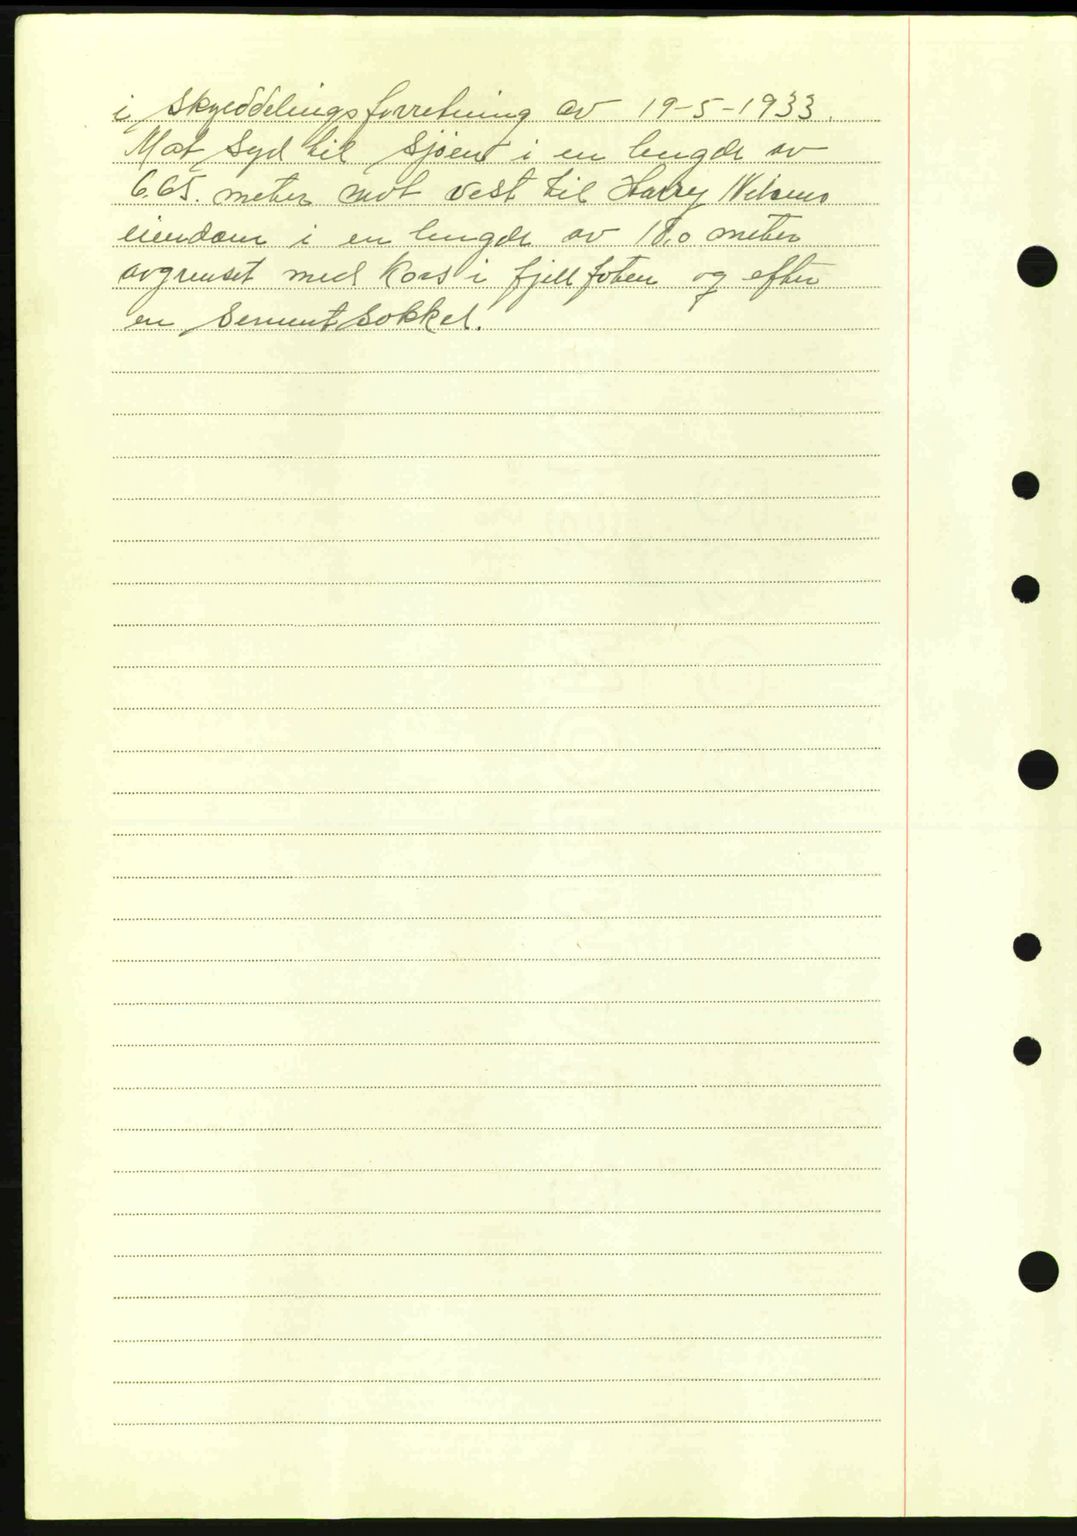 i skylddelingsforretning av 19-5-1933.
Mot Syd til Sjøen i en lengde av
6.65. meter mot vest til Harry Nilsens
eiendom i en lengde av 18,0 meter
avgrenset med Kors i fjellfoten og efter
en SementSokkel.